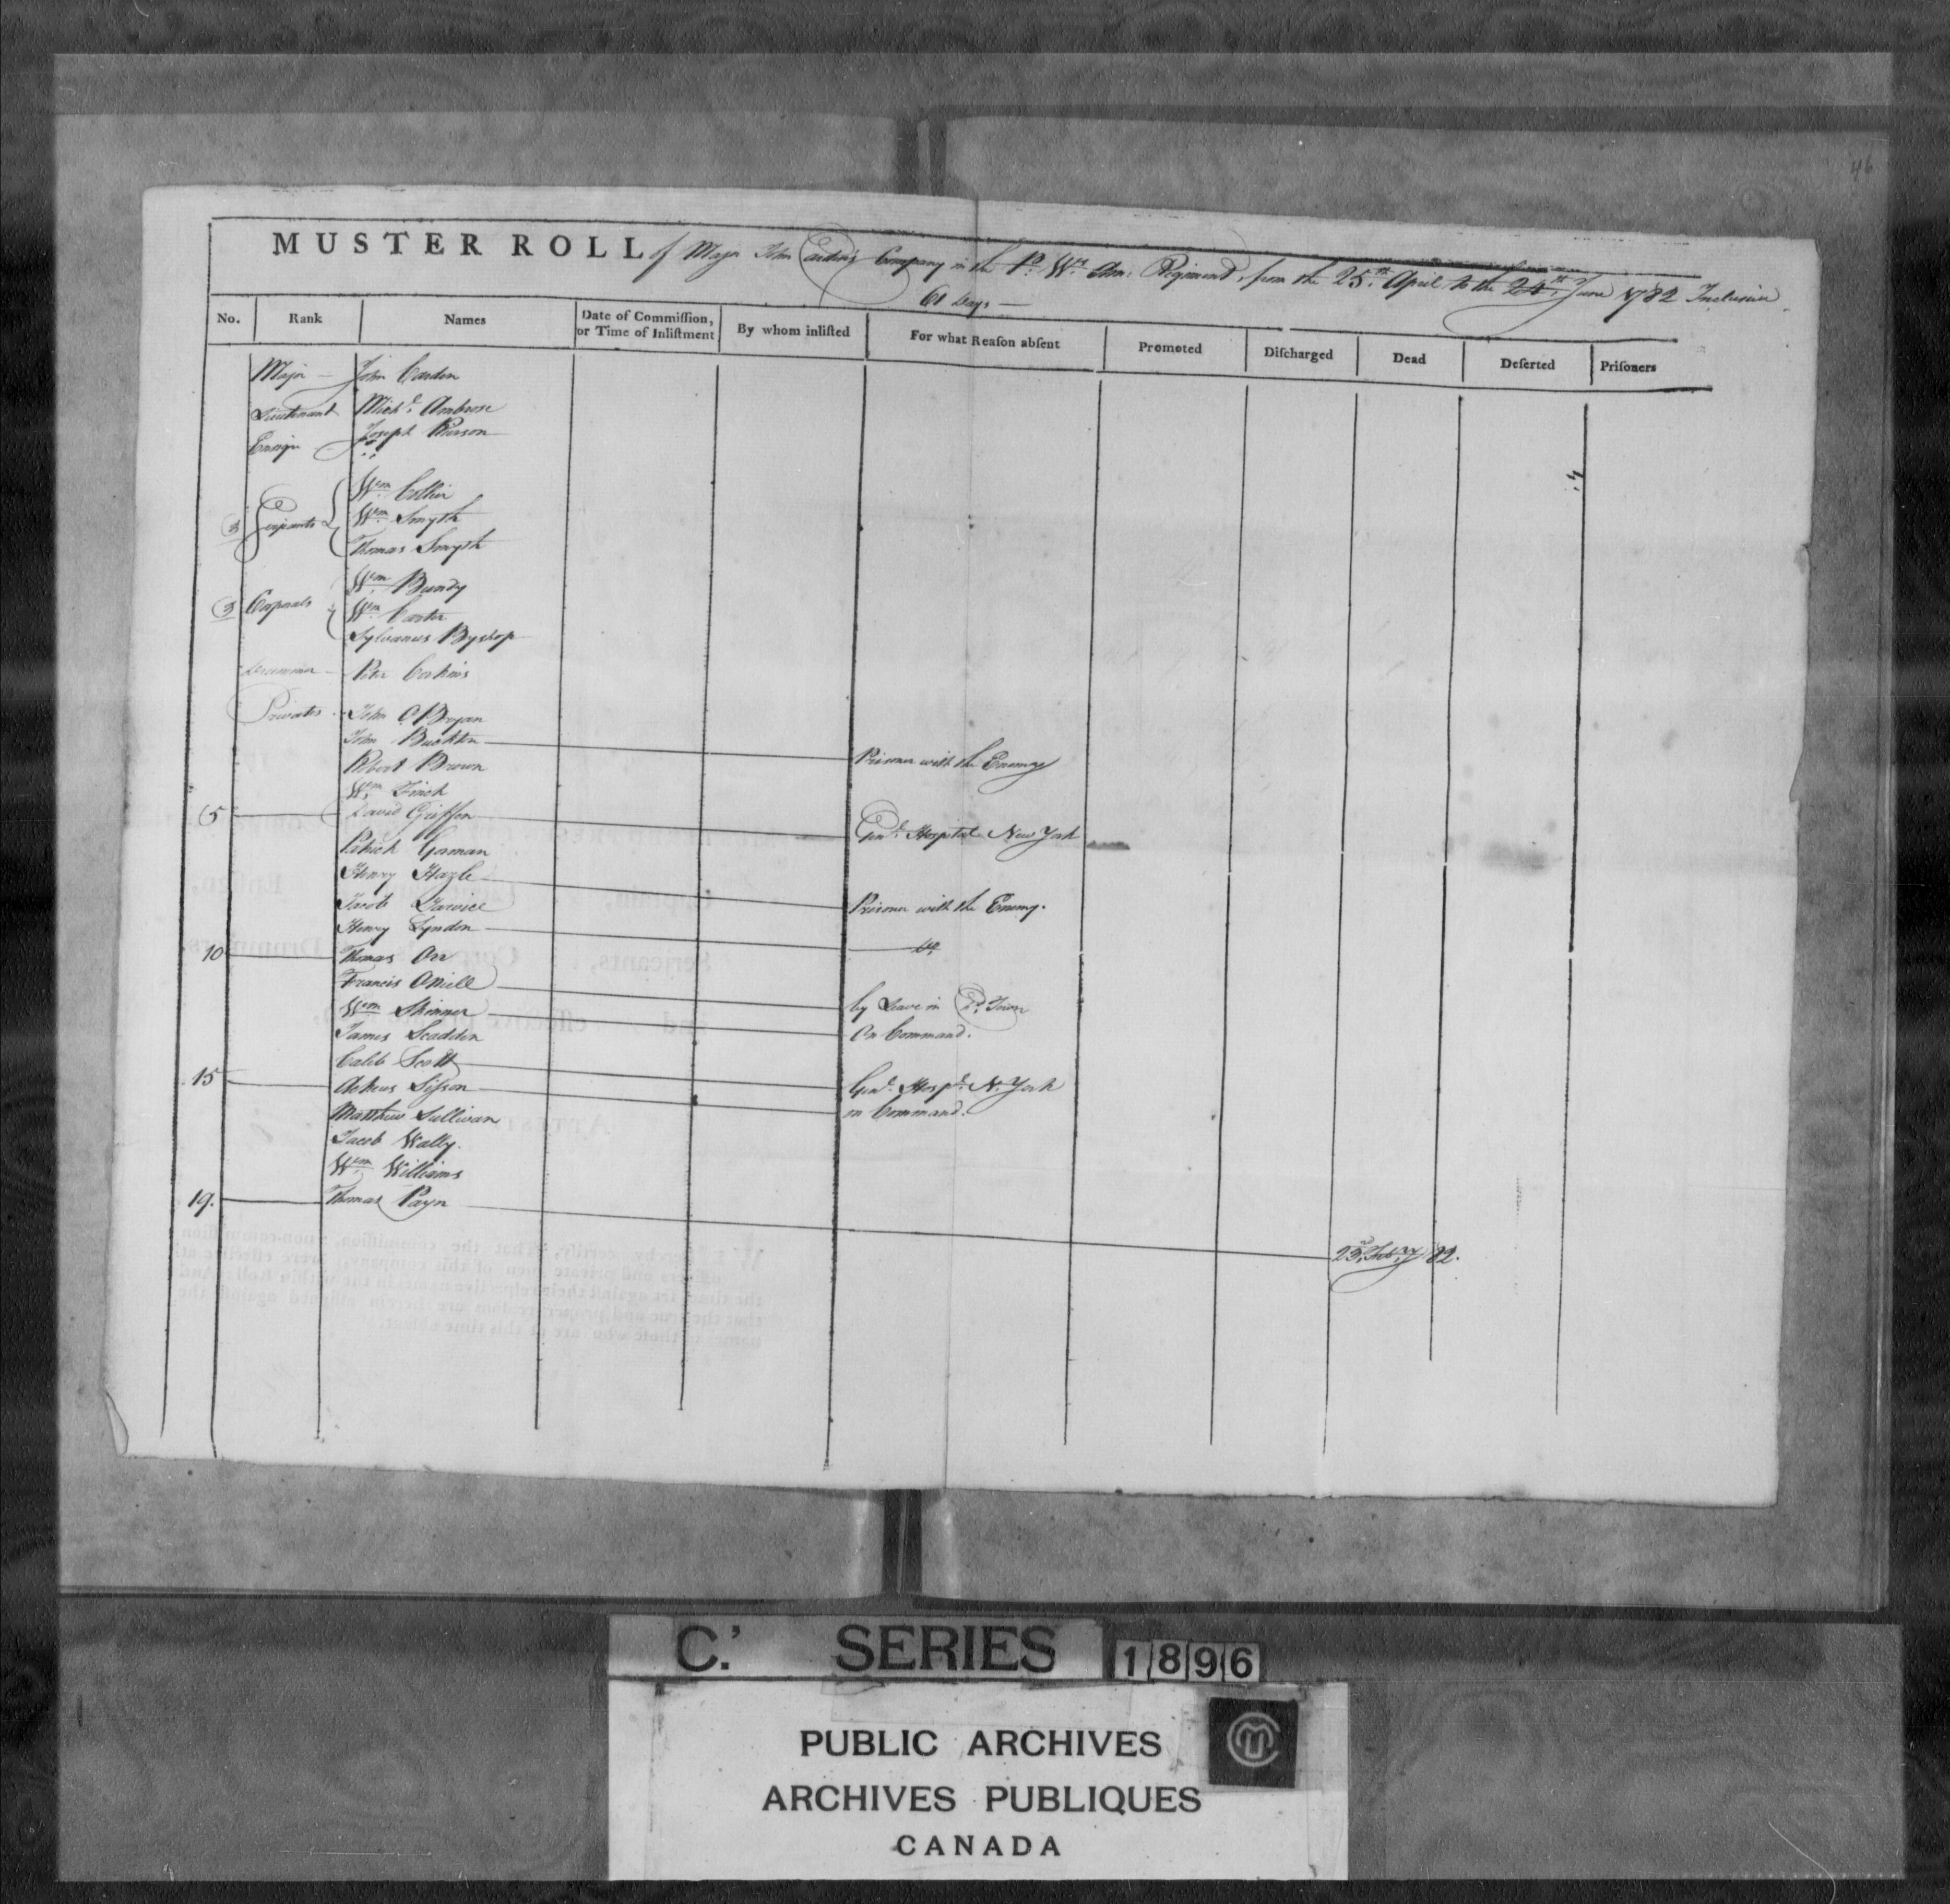 46
MUSTER ROLL of Major John Carden's Company in the P.ce W.ms Am: Regiment, from the 25.th April to the 24.th June 1782 Inclusive
61 Days
No. Rank Names Date of Commiſſion, or Time of Inliſtment By whom inliſted For what Reaſon abſent Promoted Diſcharged Dead Deſerted Priſoners
Major John Carden
Lieutenant Mich.l Ambrose
Ensign Joseph Pearson
W.m Collin
3 Serjeants W.m Smyth
Thomas Smyth
W.m Bundy
3 Corporals W.m Carter
Sylvanus Byshop
Drummer Peter Corkins
Privates John O Bryan
John Buckten Prisoner with the Enemy
Robert Brown
W.m Finch
5 David Griffen Gen.l Hospital New York
Patrick Gorman
Henry Hazle Prisoner with the Enemy.
Jacob
Henry Lyndon do
10 Thomas Orr
Francis ONiell by Leave in Town
W.m Skinner On Command.
James Scadden
Caleb Scott Gen.l Hosp.l N. York
15 Sisson on Command.
Matthew Sullivan
Jacob Wally.
W.m Williams
19. Thomas Payn 25 Feb.ry 82.
C.' SERIES 1896
PUBLIC ARCHIVES
ARCHIVES PUBLIQUES
CANADA